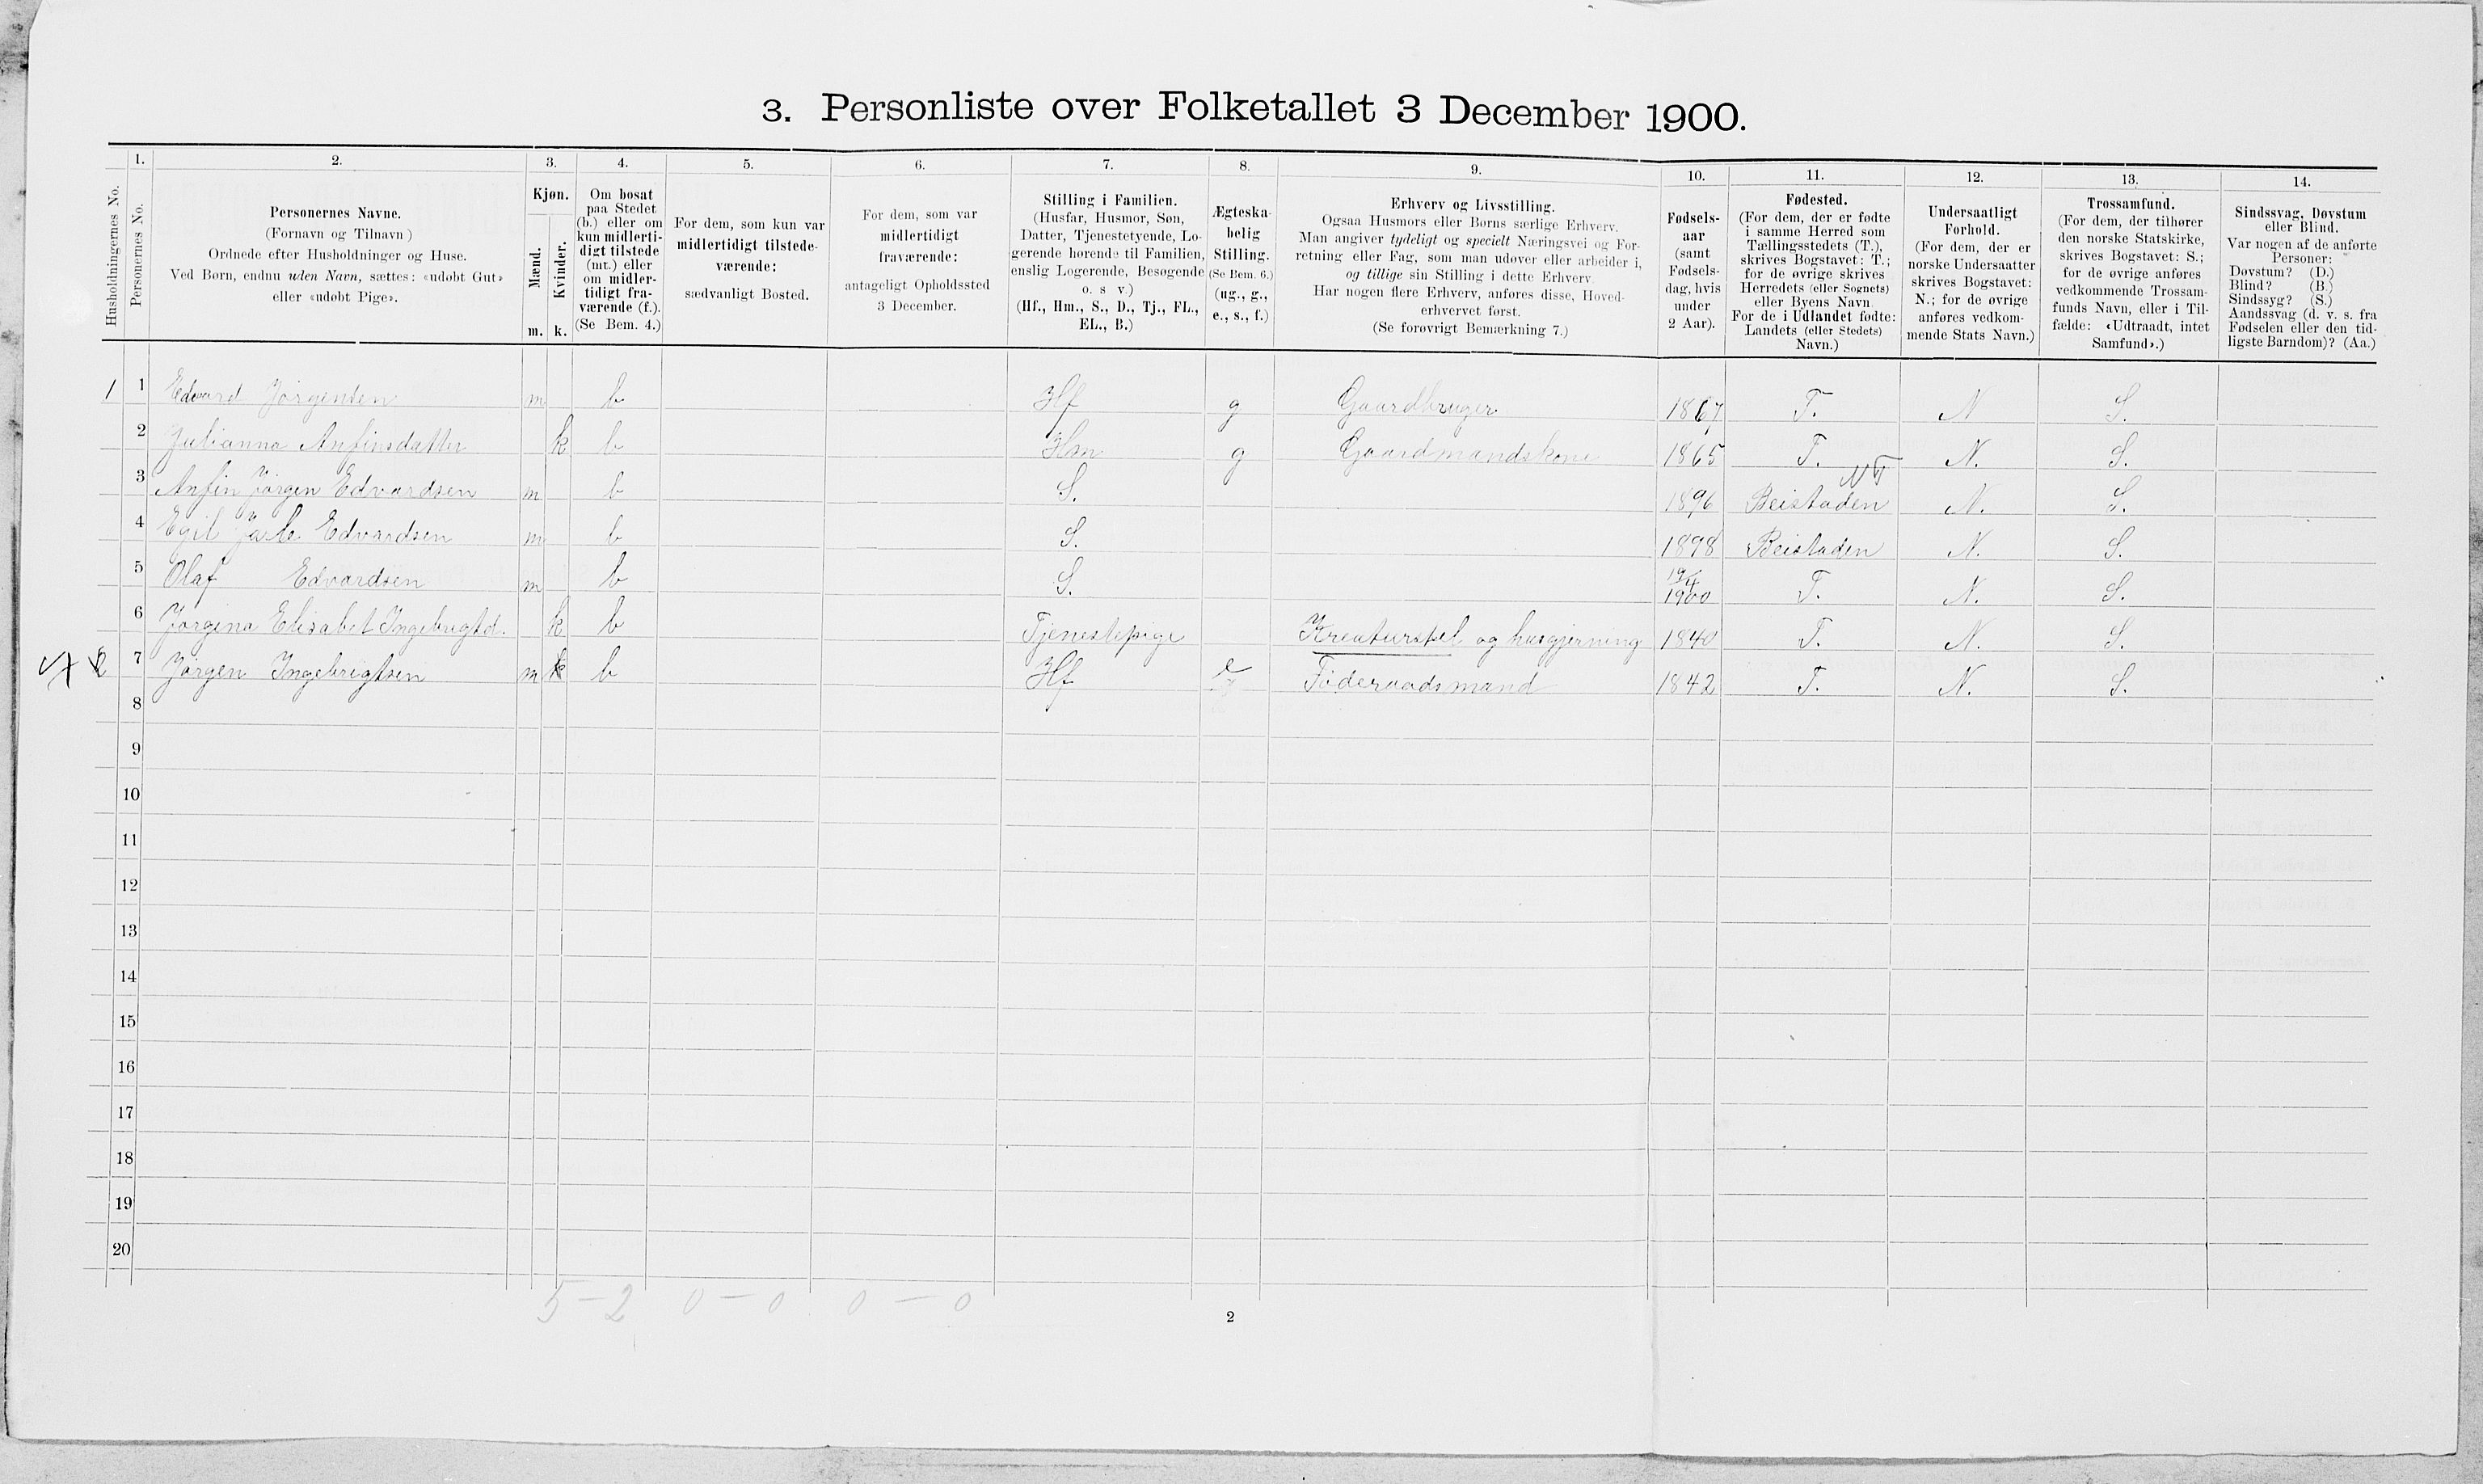 3. Personliste over Folketallet 3 December 1900.
1. 2. 3. 4. 5. 6. 7. 8. 9. 10. 11. 12. 13. 14.
Husholdningernes No.
Personernes No.
Personernes Navne.
(Fornavn og Tilnavn)
Ordnede efter Husholdninger og Huse.
Ved Børn, endnu uden Navn, sættes: «udøbt Gut»
eller «udøbt Pige».
Kjøn.
Mænd.
Kvinder.
m. k.
Om bosat
paa Stedet
(b.) eller om
kun midlerti-
digt tilstede
(mt.) eller
om midler-
tidigt fra-
værende (f.).
(Se Bem. 4.)
For dem, som kun var
midlertidigt tilstede-
værende:
sædvanligt Bosted.
For dem, som var
midlertidigt
fraværende:
antageligt Opholdssted
3 December.
Stilling i Familien.
(Husfar, Husmor, Søn,
Datter, Tjenestetyende, Lo-
gerende hørende til Familien,
enslig Logerende, Besøgende
o. s v.)
(Hf., Hm., S., D., Tj., FL.,
EL., B.)
Ægteska-
belig
Stilling.
(Se Bem. 6.)
(ug., g.,
e., s., f.)
Erhverv og Livsstilling.
Ogsaa Husmors eller Børns særlige Erhverv.
Man angiver tydeligt og specielt Næringsvei og For-
retning eller Fag, som man udøver eller arbeider i,
og tillige sin Stilling i dette Erhverv.
Har nogen flere Erhverv, anføres disse, Hoved-
erhvervet først.
(Se forøvrigt Bemærkning 7.)
Fødsels-
aar
(samt
Fødsels-
dag, hvis
under
2 Aar).
Fødested.
(For dem, der er fødte
i samme Herred som
Tællingsstedets (T.),
skrives Bogstavet: T.;
for de øvrige skrives
Herredets (eller Sognets)
eller Byens Navn.
For de i Udlandet fødte:
Landets (eller Stedets)
Navn.)
Undersaatligt
Forhold.
(For dem, der er
norske Undersaatter
skrives Bogstavet:
N.; for de øvrige
anføres vedkom-
mende Stats Navn.)
Trossamfund.
(For dem, der tilhører
den norske Statskirke,
skrives Bogstavet: S.;
for de øvrige anføres
vedkommende Trossam-
funds Navn, eller i Til-
fælde: «Udtraadt, intet
Samfund».)
Sindssvag, Døvstum
eller Blind.
Var nogen af de anførte
Personer:
Døvstum? (D.)
Blind? (B.)
Sindssyg? (S.)
Aandssvag (d. v. s. fra
Fødselen eller den tid-
ligste Barndom)? (Aa.)
1 1 Edvard Jørgensen m b Hf g Gaardbruger 1867 T. N S.
2 Julianna Anfinsdatter k b Hm g Gaardmandskone 1865 T. N. S.
NT
3 Anfin Jørgen Edvardsen m b S. 1896 Beistaden N. S.
4 Egil Jarle Edvardsen m b S. 1898 Beistaden N. S.
5 Olaf Edvardsen m b S. 1900 T. N. S.
6 Jørgina Elisabet Ingebrigtd. k b Tjenestepige Kreaturstel og husgjerning 1840 T. N. S.
2 7 Jørgen Ingebrigtsen m k b Hf e Føderaadsmand 1842 T. N. S.
8
9
10
11
12
13
14
15
16
17
18
19
20
5 - 2 0 - 0 0 - 0
2